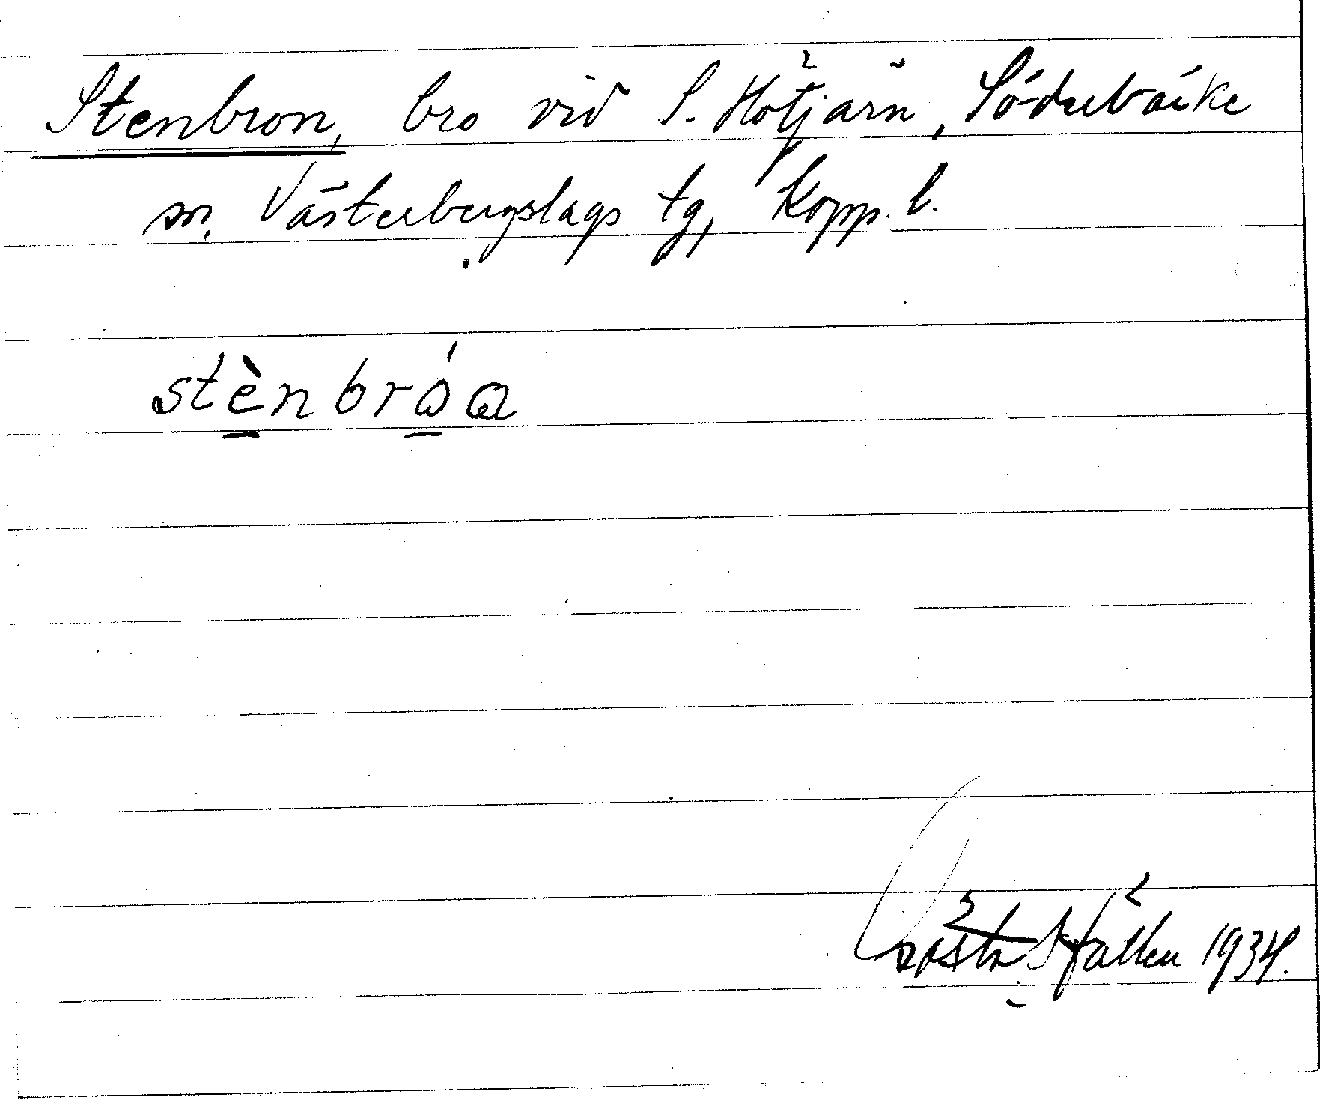 Stenbron, bro vid S. Hötjärn, Söderbärke
sn. Västerbergslags tg, Kopp. l.
stènbróa
Gösta Sjfälten 1934.